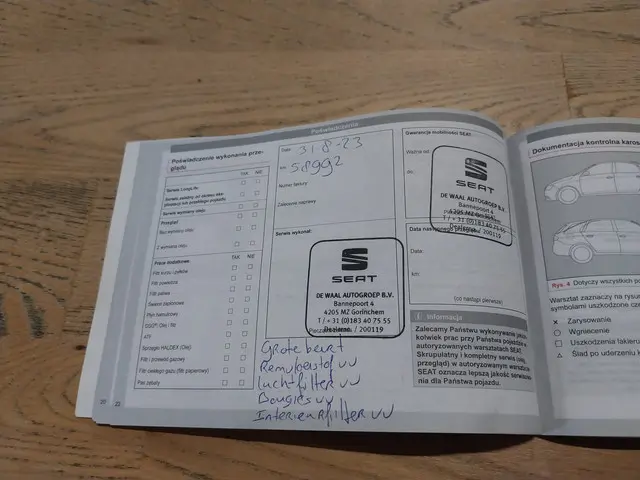 Poświadczenia
Poświadczenie wykonania prze-
glądu
TAK NIE
Serwis LongLife
Serwis zależny od okresu eks-
ploatacji lub przebiegu pojazdu
Serwis wymiany oleju
Przegląd
Bez wymiany oleju
Z wymianą oleju
Prace dodatkowe:
TAK NIE
Filtr kurzu i pyłków
Filtr powietrza
Filtr paliwa
Świece zapłonowe
Płyn hamulcowy
DSG®: Olej i filtr
ATF
Sprzęgło HALDEX (Olej)
Filtr i przewód gazowy
Filtr ciekłego gazu (filtr papierowy)
Pas zębaty
Data 31-8-23
km 58992
Numer faktury
Zalecone naprawy
Serwis wykonał:
SEAT
DE WAAL AUTOGROEP B.V.
Bannepoort 4
4205 MZ Gorinchem
T / +31 (0)183 40 75 55
Dealernr. / 200119
Grote beurt
Remvloeistof vv
Luchtfilter vv
Bougies vv
Interieurfilter vv
Gwarancja mobilności SEAT
Ważna od:
do:
SEAT
DE WAAL AUTOGROEP B.V.
Bannepoort 4
4205 MZ Gorinchem
T / +31 (0)183 40 75 55
Dealernr. / 200119
Data następnego przeglądu
Data:
km:
(co nastąpi pierwsze)
i Informacja
Zalecamy Państwu wykonywanie jakich-
kolwiek prac przy Państwa pojeździe w
autoryzowanych warsztatach SEAT.
Skrupulatny i kompletny serwis (np.
przegląd) w autoryzowanym warsztacie
SEAT oznacza lepszą jakość serwisowa-
nia dla Państwa pojazdu.
22
Dokumentacja kontrolna karos
Rys. 4 Dotyczy wszystkich po
Warsztat zaznaczy na rysun
symbolami uszkodzone czę
× Zarysowanie
○ Wgniecenie
□ Uszkodzenia lakieru
△ Ślad po uderzeniu k